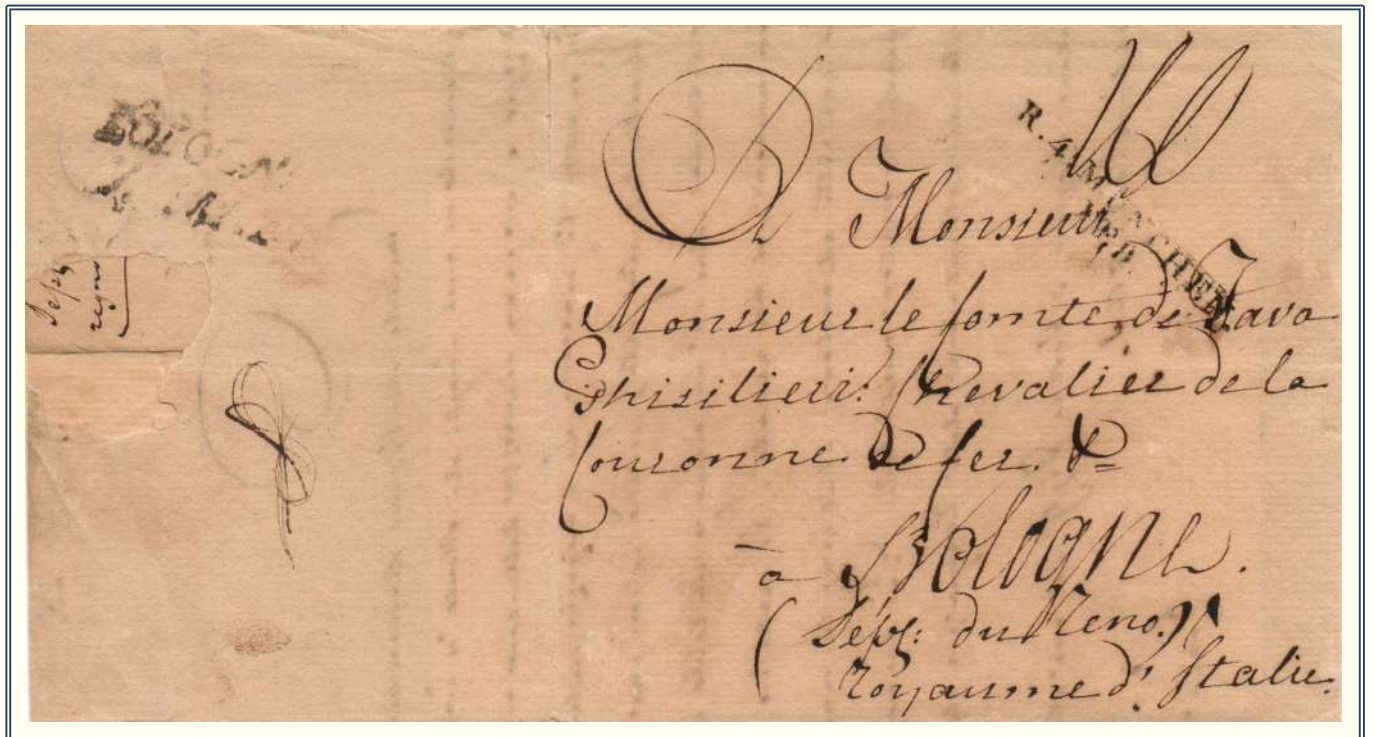 BOLOGN
R. 4. MÜNCHEN
A Monsieur
Monsieur le Comte de Cara
Ghisilieri. Chevalier de la
Couronne de fer. &
à Bologne.
(Dépt: du Reno.)
Royaume d'Italie.